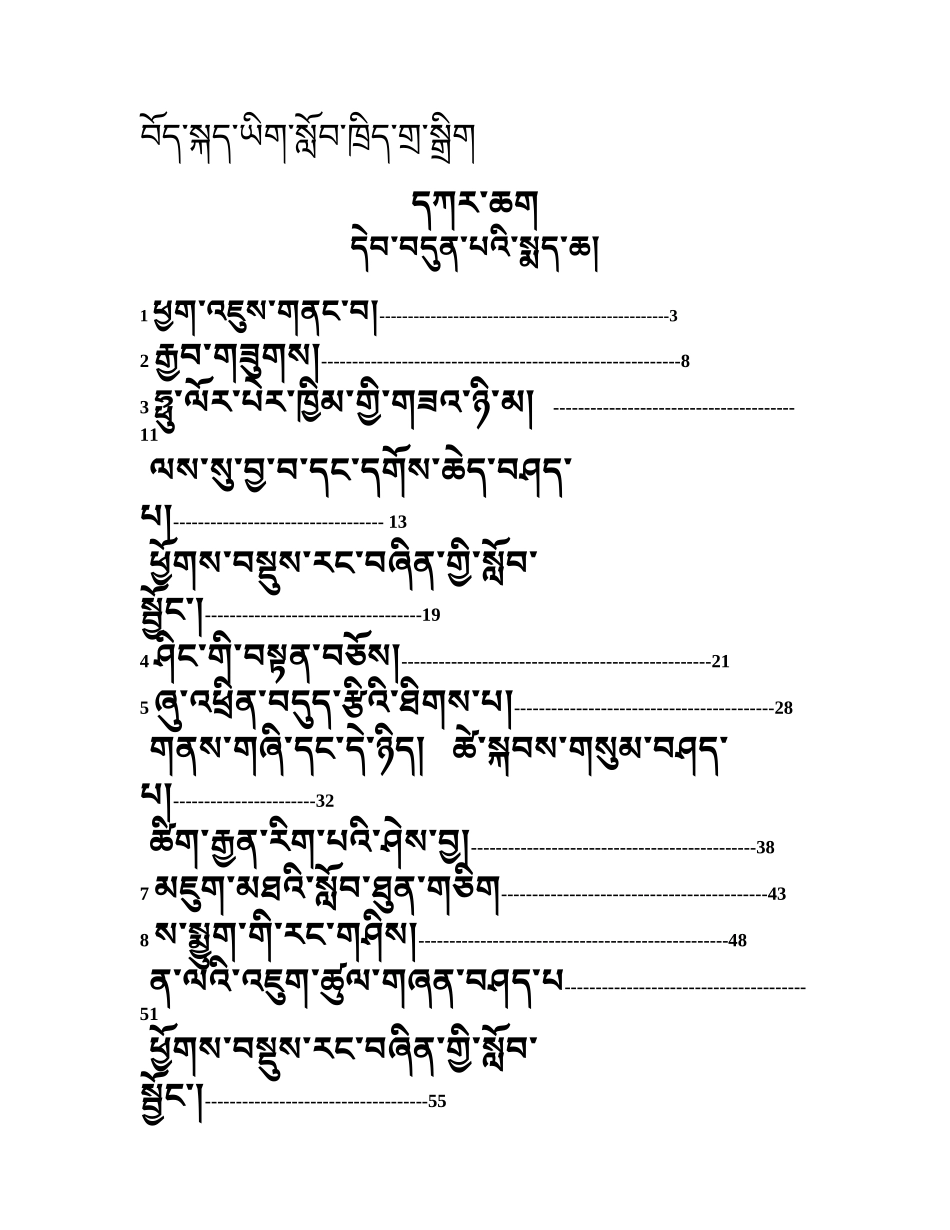 བོད་སྐད་ཡིག་སློབ་ཁྲིད་གྲ་སྒྲིག
དཀར་ཆག
དེབ་བདུན་པའི་སྨད་ཆ།
1 ཕྱག་འཇུས་གནང་བ།---------------------------------------------------3
2 རྒྱབ་གཟུགས།----------------------------------------------------------8
3 ཧྥུ་ལོར་པེར་ཁྱིམ་གྱི་གཟའ་ཉི་མ། ---------------------------------------
11
ལས་སུ་བྱ་བ་དང་དགོས་ཆེད་བཤད་
པ།---------------------------------- 13
ཕྱོགས་བསྡུས་རང་བཞིན་གྱི་སློབ་
སྦྱོང་།-----------------------------------19
4 ཤིང་གི་བསྟན་བཅོས།--------------------------------------------------21
5 ཞུ་འཕྲིན་བདུད་རྩིའི་ཐིགས་པ།------------------------------------------28
གནས་གཞི་དང་དེ་ཉིད། ཚེ་སྐབས་གསུམ་བཤད་
པ།-----------------------32
ཚིག་རྒྱན་རིག་པའི་ཤེས་བྱ།----------------------------------------------38
7 མཇུག་མཐའི་སློབ་ཐུན་གཅིག-------------------------------------------43
8 ས་སྨྱུག་གི་རང་གཤིས།--------------------------------------------------48
ན་ལའི་འཇུག་ཚུལ་གཞན་བཤད་པ---------------------------------------
51
ཕྱོགས་བསྡུས་རང་བཞིན་གྱི་སློབ་
སྦྱོང་།------------------------------------55